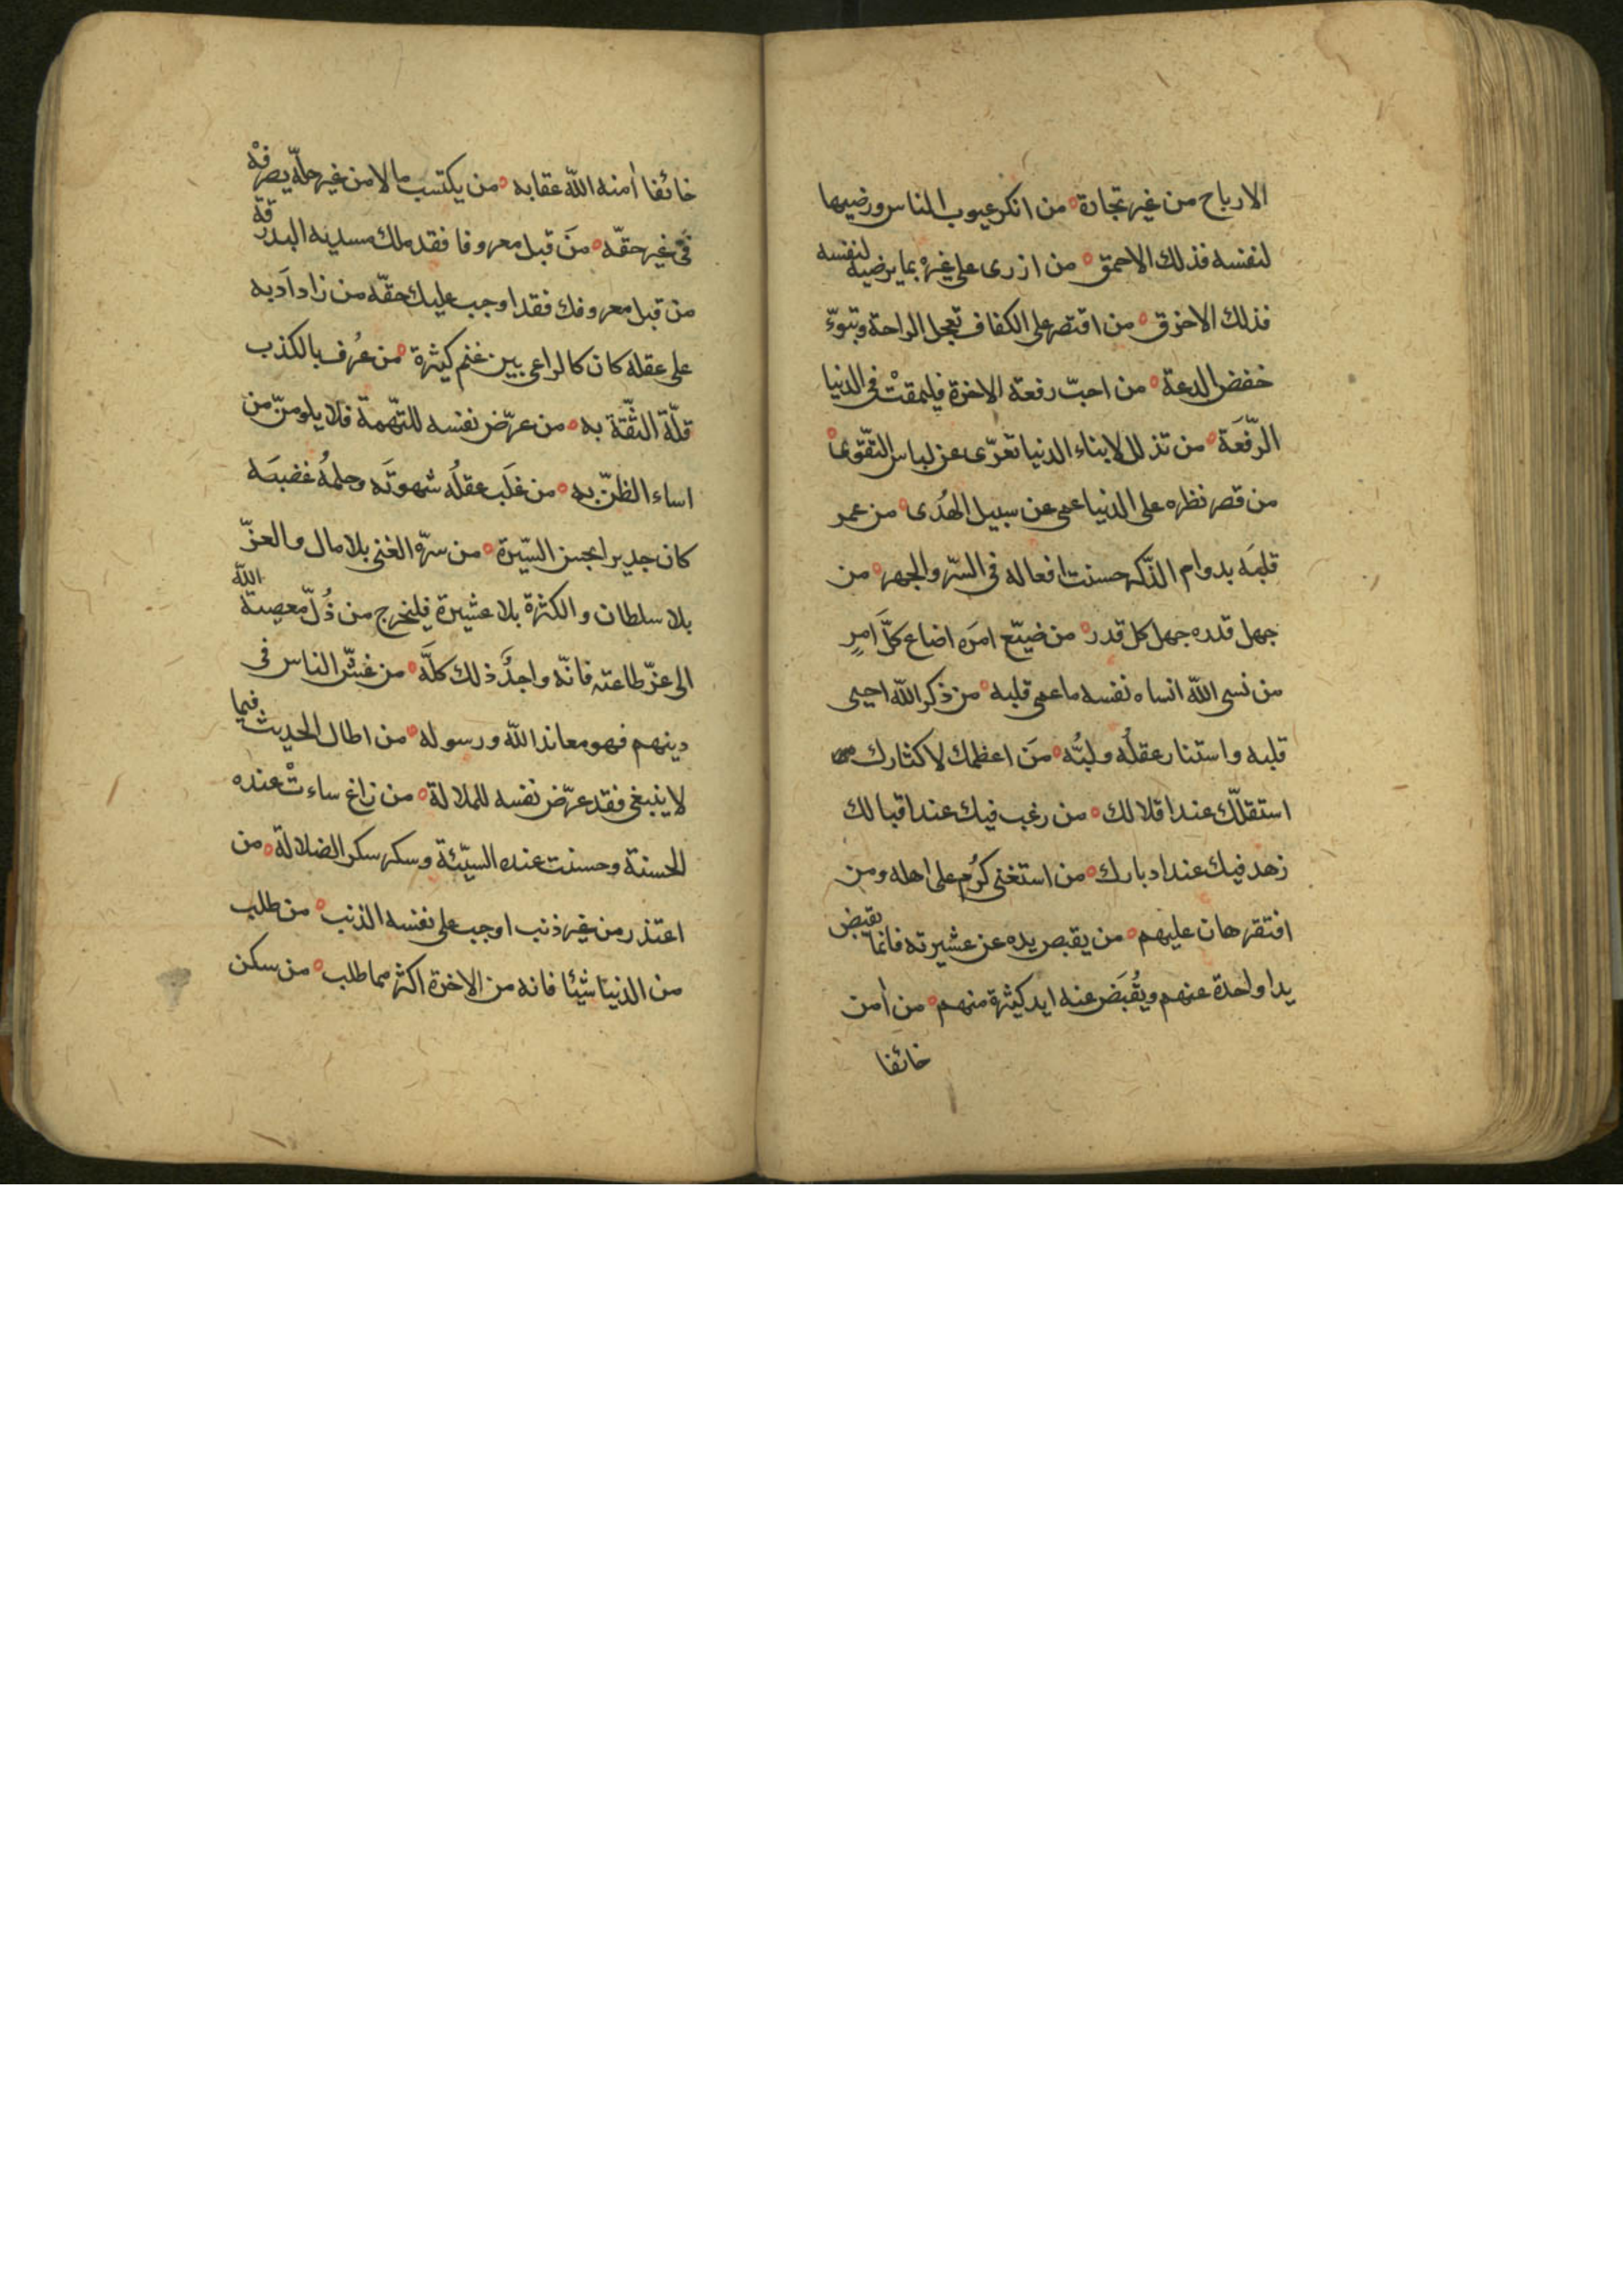 الارباح من غير تجارة ه من انكر عيوب الناس ورضيها
لنفسه فذلك الاحمق ه من ازرى على غيره بما يرضيه لنفسه
فذلك الاخرق ه من اقتصر على الكفاف تعجل الراحة وتبوّء
خفض الدعة ه من احبّ رفعة الاخرة فليمقتْ فى الدنيا
الرّفعَة ه من تذلل لابناء الدنيا تعرّى عن لباس التّقوى ه
من قصر نظره على الدنيا عمى عن سبيل الهُدى ه من عمر
قلبَه بدوام الذّكر حسنت افعاله فى السّر والجهر ه من
جهل قدره جهل كل قدر ه من ضيّع امرَه اضاع كلَّ امرٍ
من نسى اللّه انساه نفسه ما عمى قلبه ه من ذكر اللّه احيى
قلبه واستنار عقلُه ولبُّه ه مَن اعظمك لاكثارك
استقلّك عند اقلالك ه من رغب فيك عند اقبالك
زهد فيك عند ادبارك ه من استغنى كرُم على اهله ومن
افتقر هان عليهم ه من يقبص يده عن عشيرته فانما يقبض
يدا واحدة عنهم ويُقبَض عنه ايد كثيرة منهم ه من اٰمن
خائفا
خائفا اٰمنه اللّه عقابه ه من يكتسب مالا من غير حلّه يصرفْه
فى غير حقّه ه مَن قبل معروفا فقد ملك مسديه اليه رقّه
من قبل معروفك فقد اوجب عليك حقّه من زاد اَدبه
على عقله كان كالراعى بين غنم كثيرة ه من عُرف بالكذب
قلّة الثّقة به ه من عرّض نفسه للتّهمة فلا يلومنّ من
اساء الظنّ به ه من غلَب عقلُه شهوتَه وحلمُه غضبَه
كان جديرا بحسن السّيرة ه من سرّه الغنى بلا مال والعزّ
بلا سلطان والكثرة بلا عشيرة فليخرج من ذُلّ معصية اللّه
الى عزّ طاعته فانّه واجدٌ ذلك كلَّه ه من غشّ الناس فى
دينهم فهو معاند اللّه ورسوله ه من اطال الحديث فيما
لا ينبغى فقد عرّض نفسه للملالة ه من زاغ ساءتْ عنده
الحسنة وحسنت عنده السيّئة وسكر سكر الضلالة ه من
اعتذر من غير ذنب اوجب على نفسه الذنب ه من طلب
من الدنيا شيئا فاته من الاخرة اكثر مما طلب ه من سكن